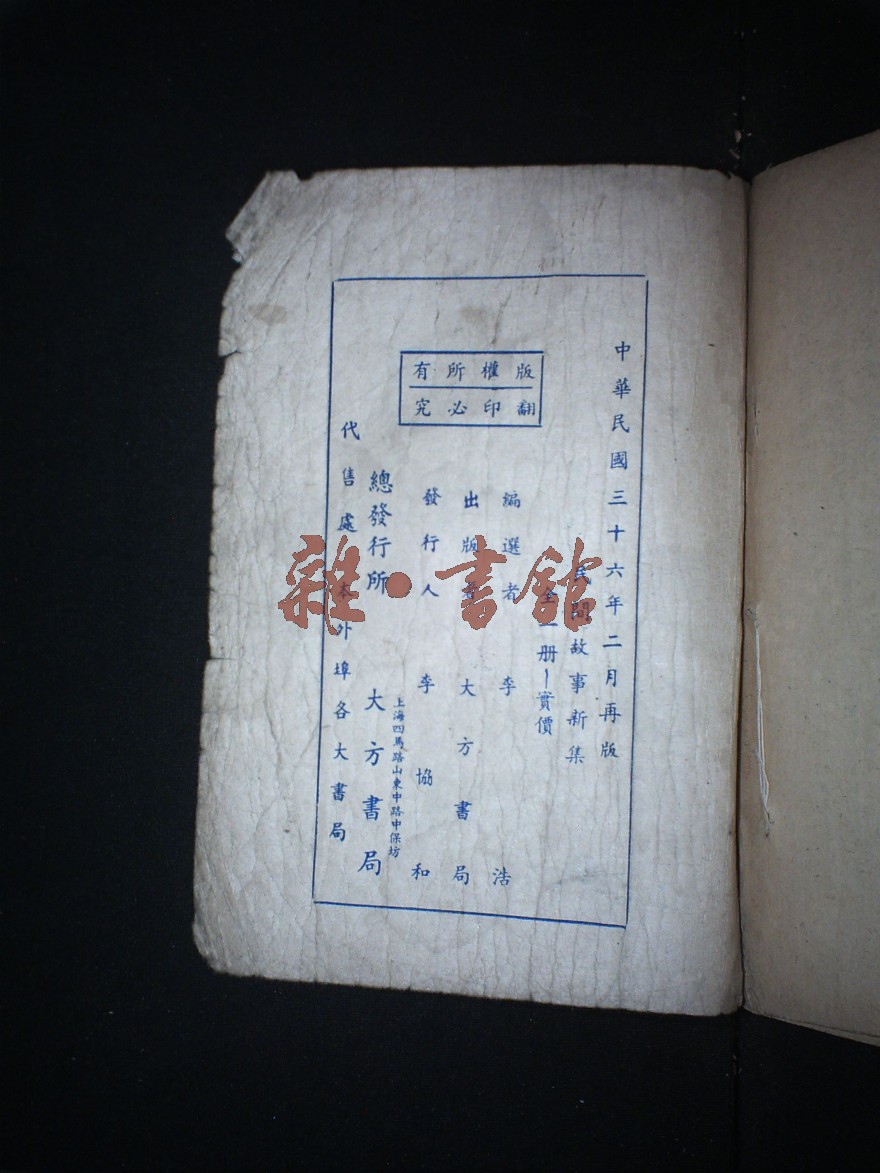 中華民國三十六年二月再版
民間故事新集
全一册 實價
版權所有
翻印必究
編選者 李浩
出版者 大方書局
發行人 李協和
上海四馬路山東中路中保坊
總發行所 大方書局
代售處 本外埠各大書局
雜·書館